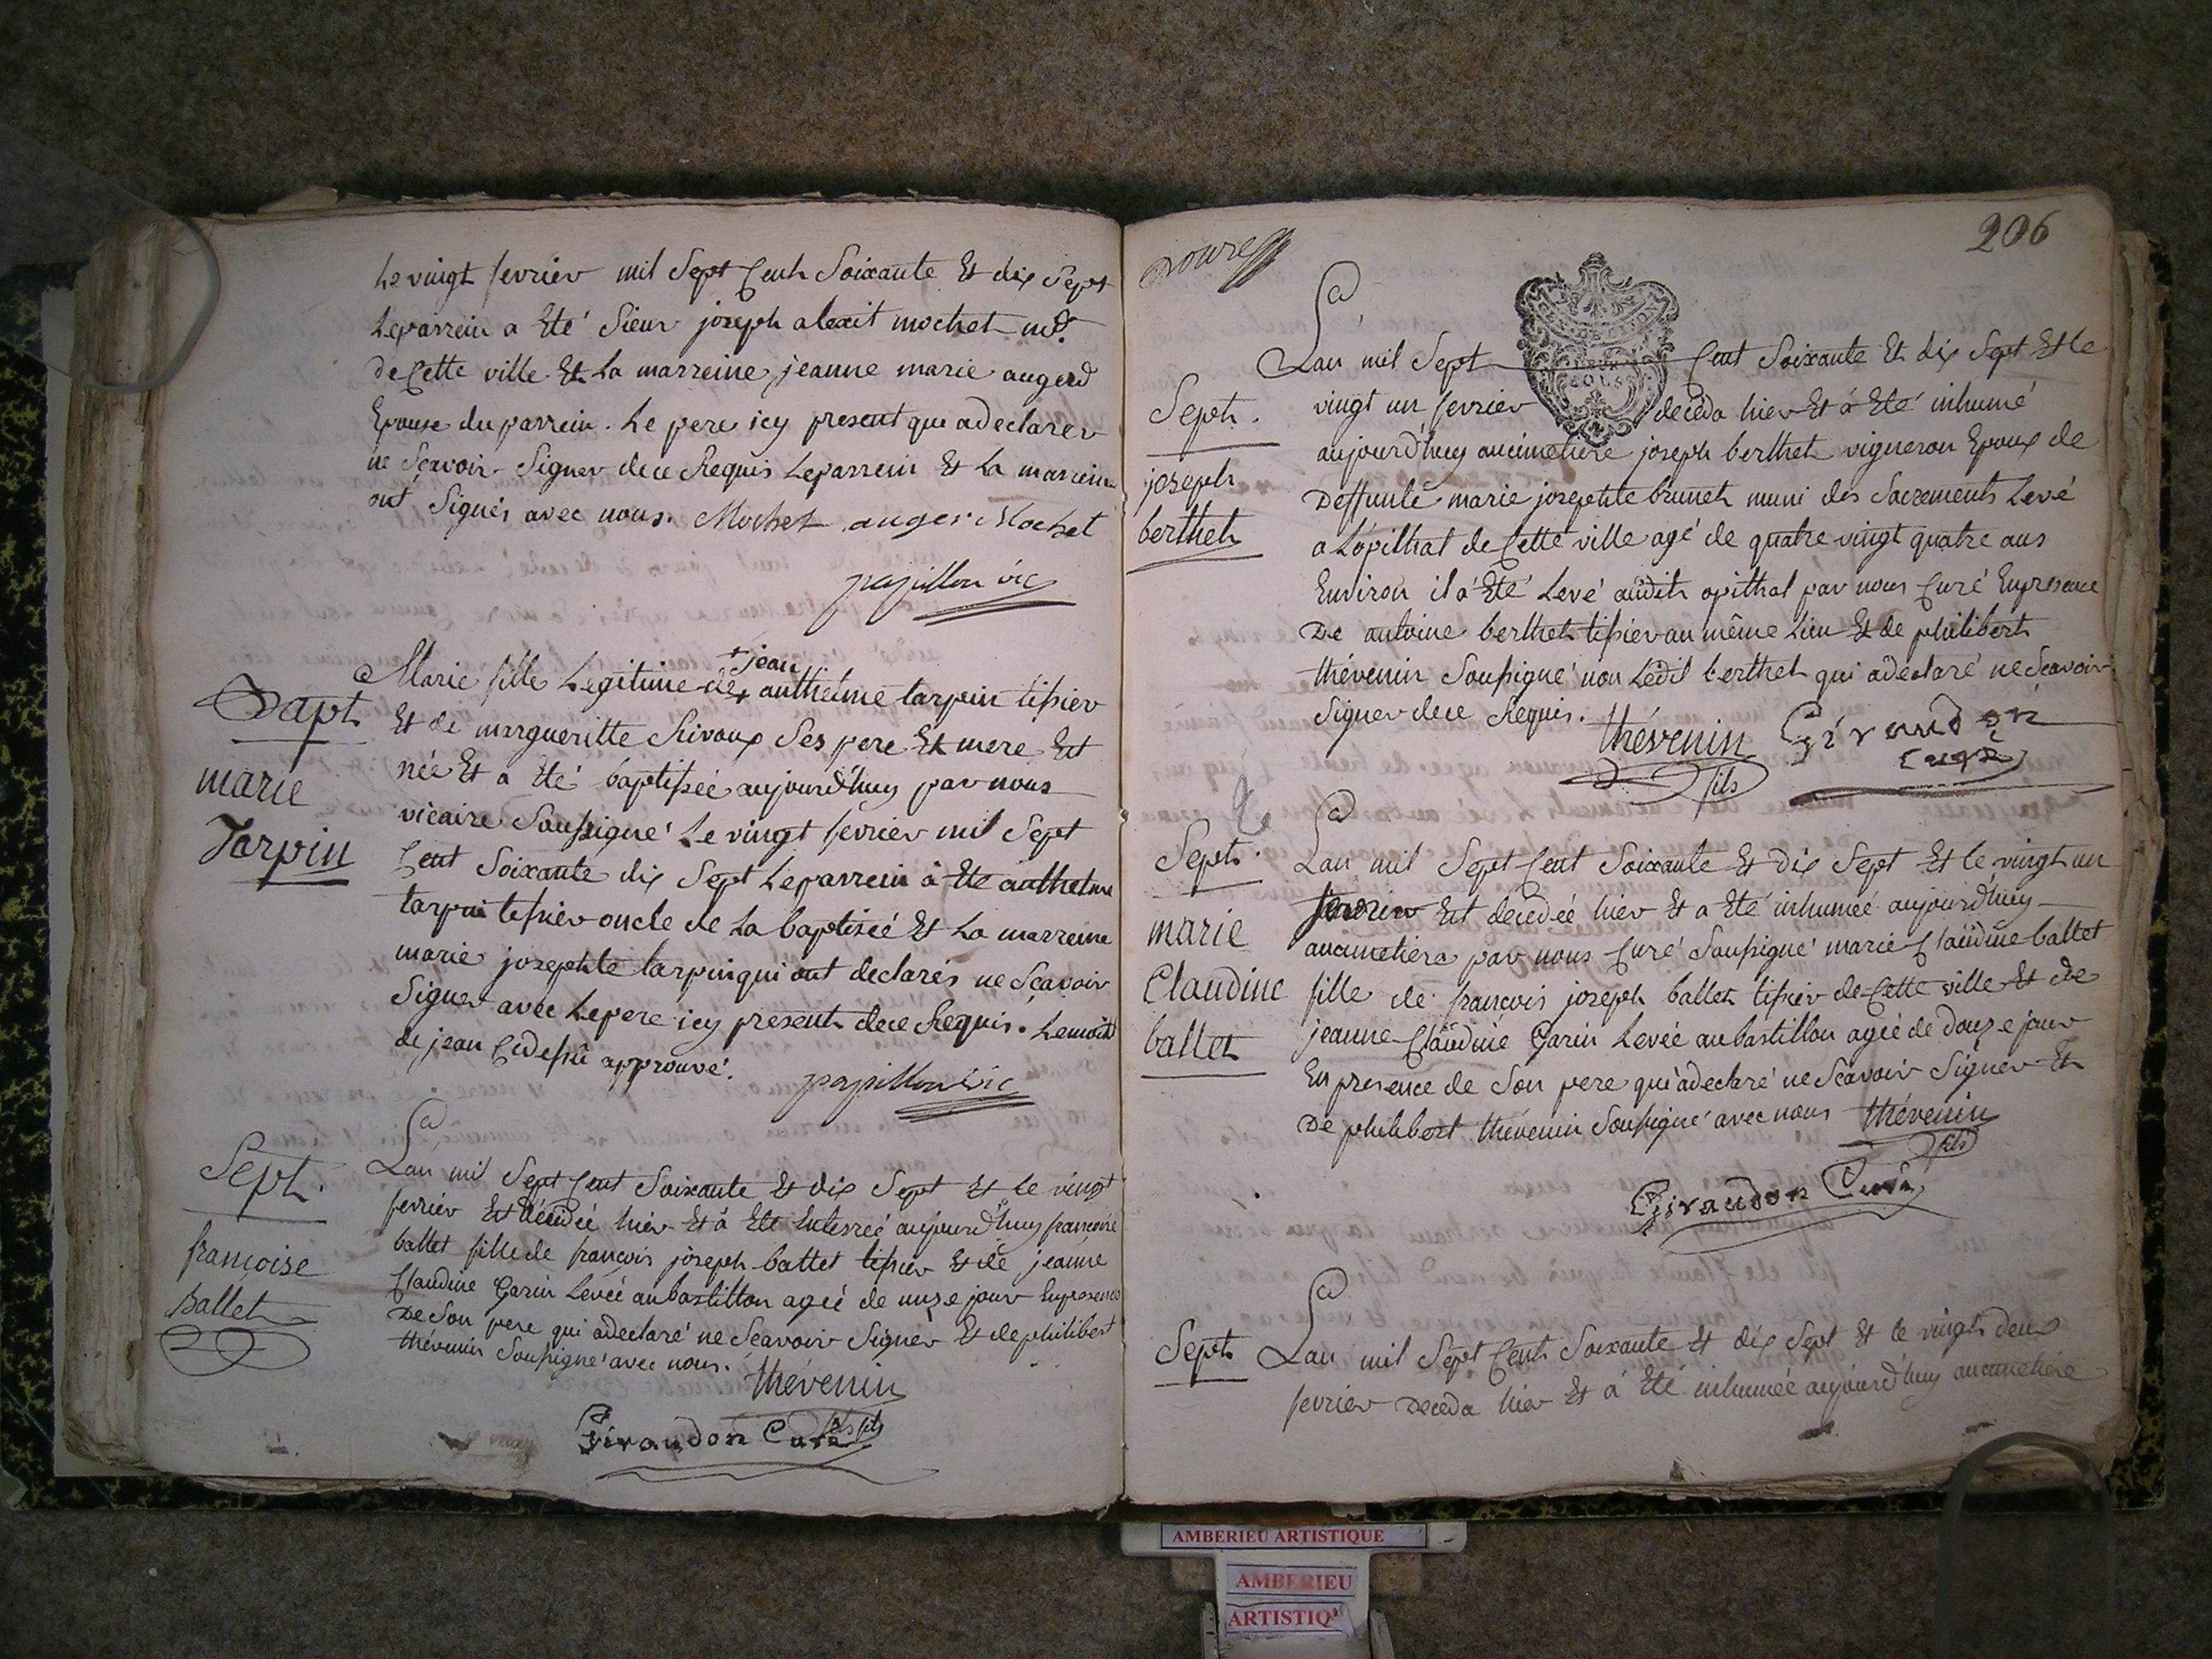 Le vingt fevrier mil Sept Cent Soixante Et dix Sept
Leparrein a Eté Sieur joseph alexit mochet md.
de Cette ville Et La marreine jeanne marie augerd
Epouse du parrein. Le pere icy present qui a declarer
ne Scavoir Signer de ce Requis Leparrein Et La marreine
ont Signés avec nous. Mochet auger Mochet
papillon vic
Bapt
marie
Tarpin
+ jean
Marie fille Legitime de + anthelme tarpin tissier
Et de margueritte Rivoux Ses pere Et mere Est
née Et a Eté baptissée aujourd'huy par nous
vicaire Soussigné Le vingt fevrier mil Sept
Cent Soixante dix Sept Leparrein à Eté anthelme
tarpin tissier oncle de La baptisée Et La marreine
marie josephte tarpin qui ont declarés ne Scavoir
Signer avec Le pere icy present de ce Requis. Le mot
de jean Cidessû approuvé.
papillon vic
Sept.
françoise
Ballet
Lan mil Sept Cent Soixante Et dix Sept Et le vingt
fevrier Est décédée hier Et à Eté Enterrée aujourd'huy francoise
ballet fille de françois joseph ballet tissier Et de jeanne
Claudine Garin Levée au bastillon agée de unze jour En presence
De Son pere qui adeclaré ne Scavoir Signer Et de philibert
thévenin Soussigné avec nous.
thévenin
fils
Giraudon Curé
206
Sept.
joseph
berthet
Lan mil Sept Cent Soixante Et dix Sept Et le
vingt un fevrier décéda hier Et à Eté inhumé
aujourd'huy aucimetiere joseph berthet vigneron Epoux de
Deffunte marie josephte brunet muni des Sacrements Levé
a Lopithal de Cette ville agé de quatre vingt quatre ans
Environ il a Eté Levé audit opithal par nous Curé Enpresence
De antoine berthet tissier au même Lieu Et de philibert
thévenin Soussigné non Ledit berthet qui adeclaré ne Scavoir
Signer de ce Requis.
thévenin
fils
Giraudon
Curé
Sept.
marie
Claudine
ballet
Lan mil Sept Cent Soixante Et Dix Sept Et le vingt un
fevrier Est decedée hier Et a Eté inhumée aujourd'huy
aucimetiere par nous Curé Soussigné marie Claudine ballet
fille de francois joseph ballet tissier de Cette ville Et de
jeanne Claudine Garin Levée au bastillon agée de douze jour
En presence de Son pere qui adeclaré ne Scavoir Signer Et
De philibert thévenin Soussigné avec nous thévenin
fils
Giraudon Curé
Sept.
Lan mil Sept Cent Soixante Et dix Sept Et le vingt deux
fevrier Deceda hier Et a Eté inhumée aujourd'huy aucimetiere
AMBERIEU ARTISTIQUE
AMBERIEU
ARTISTIQ